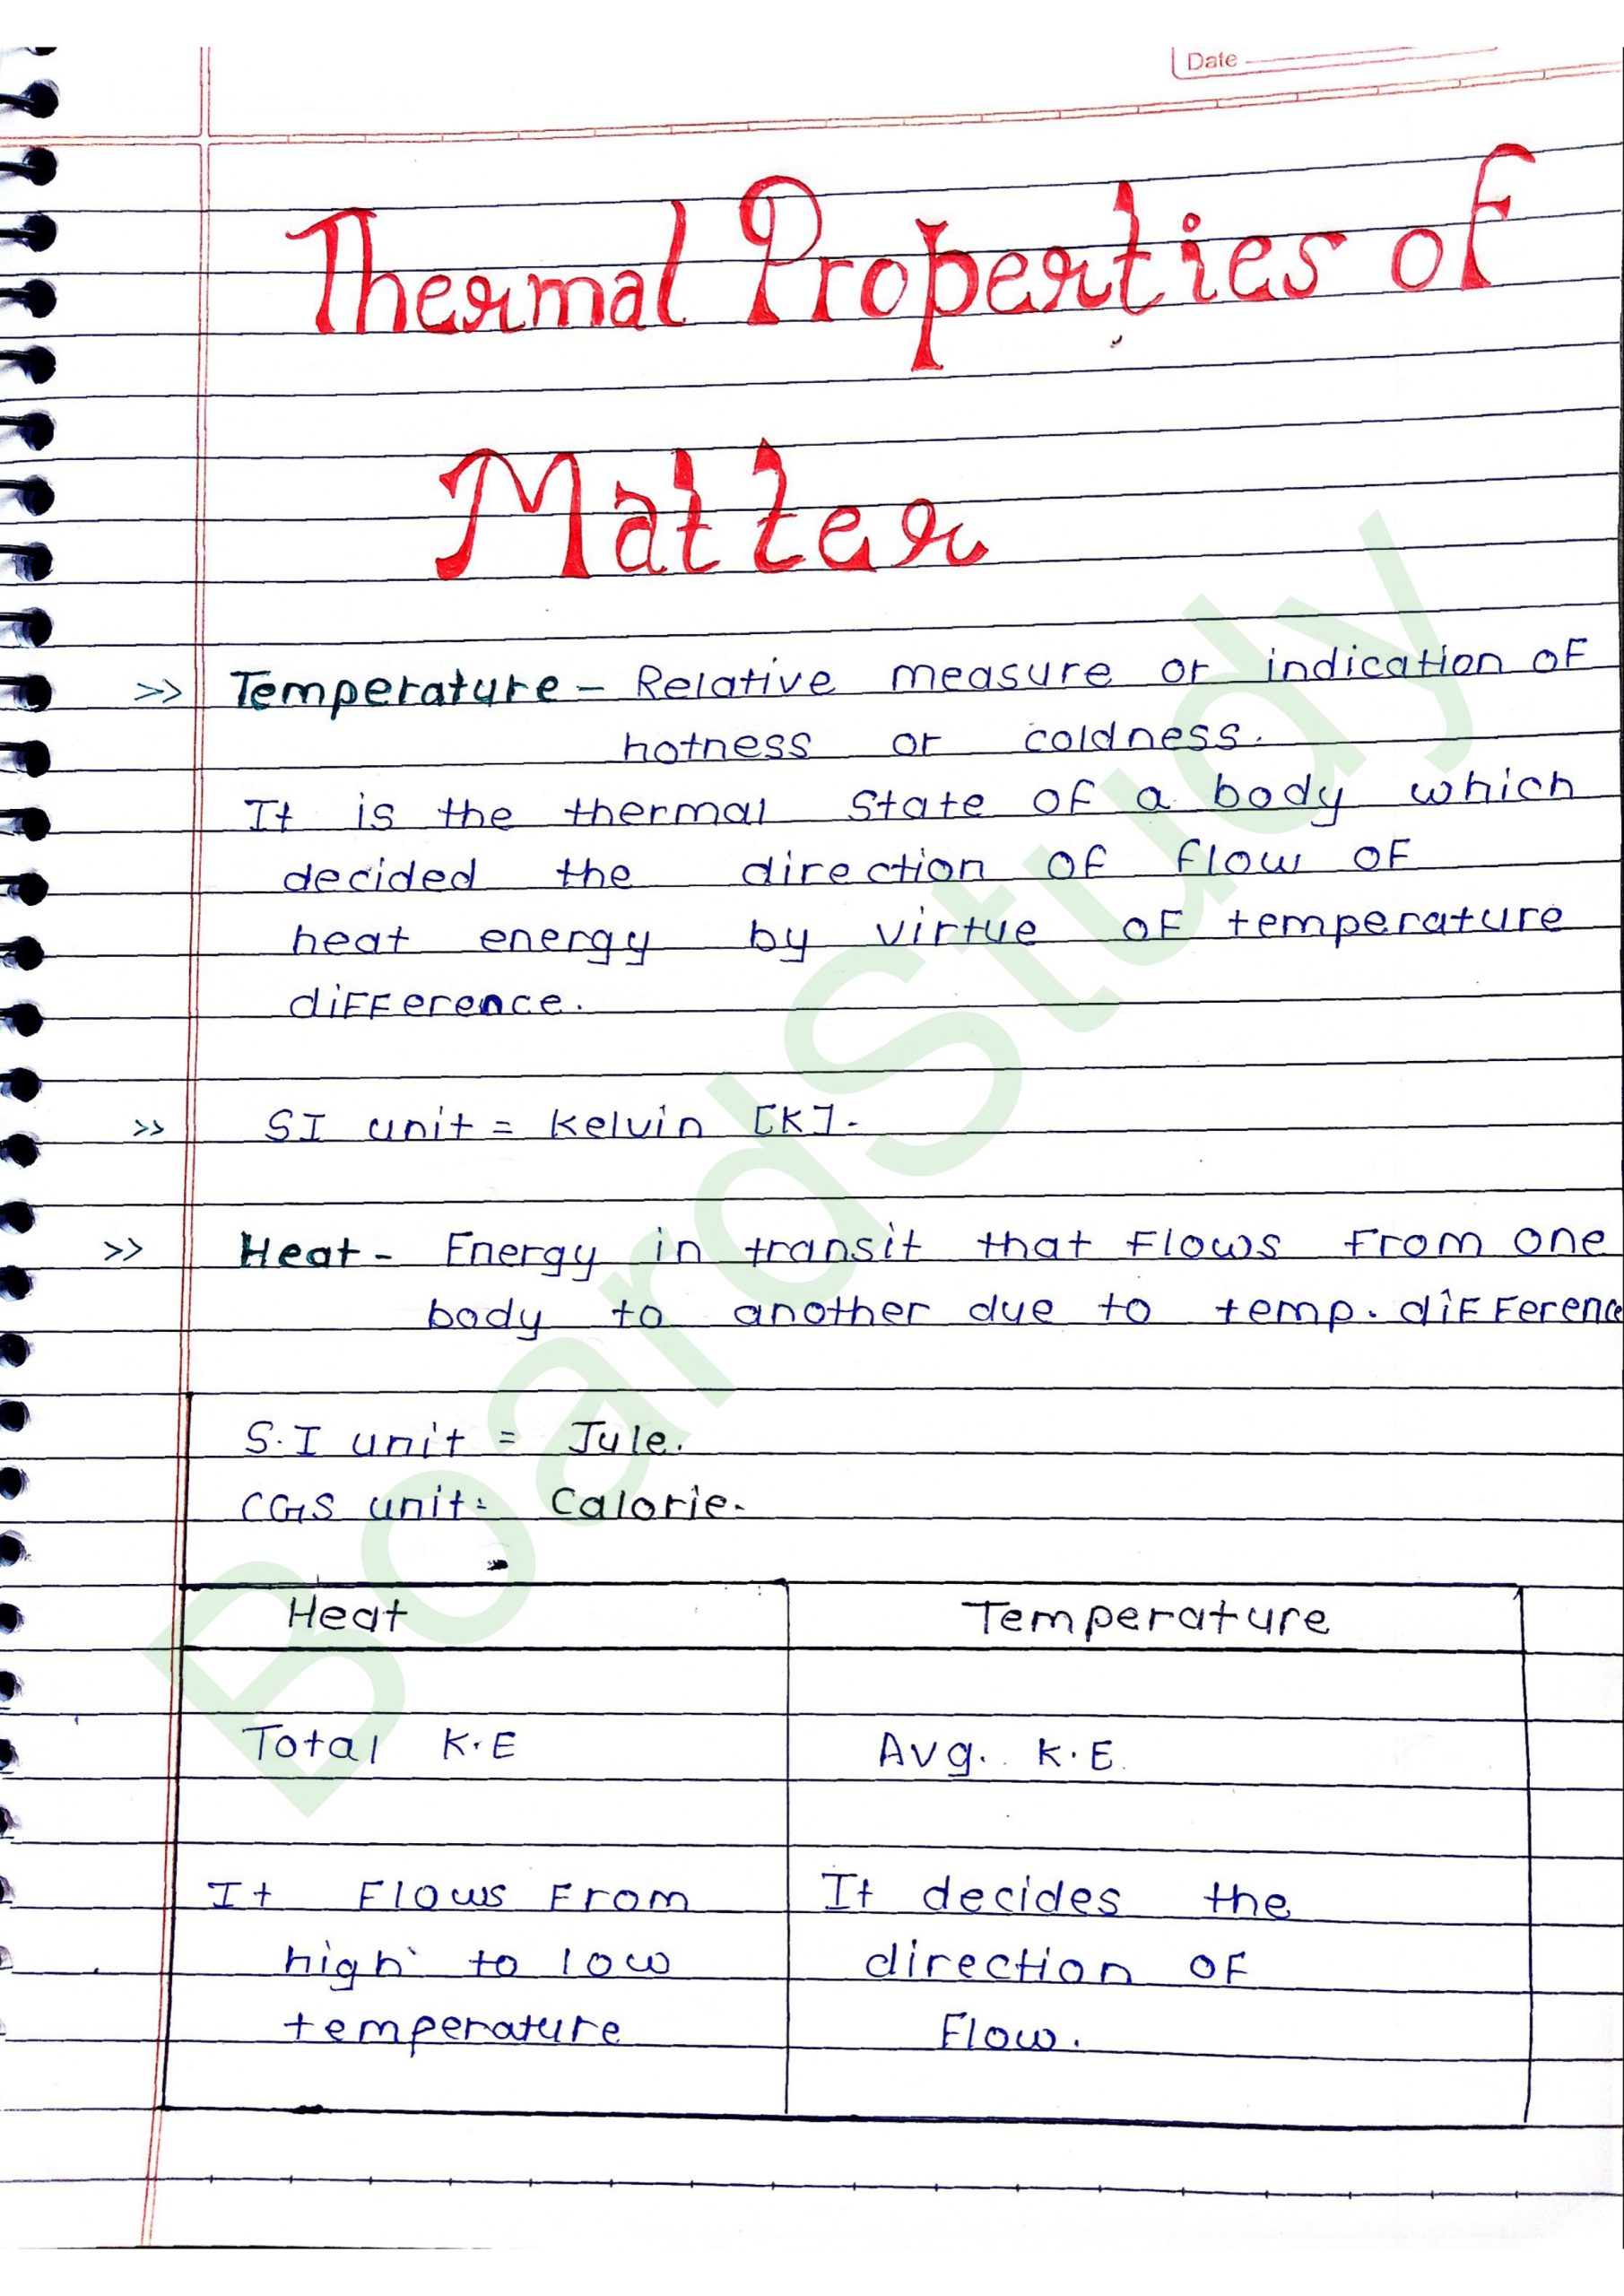 Date
Thermal Properties of
Matter
>> Temperature - Relative measure or indication of
hotness or coldness.
It is the thermal State of a body which
decided the direction of flow of
heat energy by virtue of temperature
difference.
>> SI unit = Kelvin [K].
>> Heat - Energy in transit that flows from one
body to another due to temp. differenc
S.I unit = Jule.
CGS unit = Calorie.
Heat Temperature
Total K.E Avg. K.E.
It flows from It decides the
high to low direction of
temperature flow.
BoardStudy